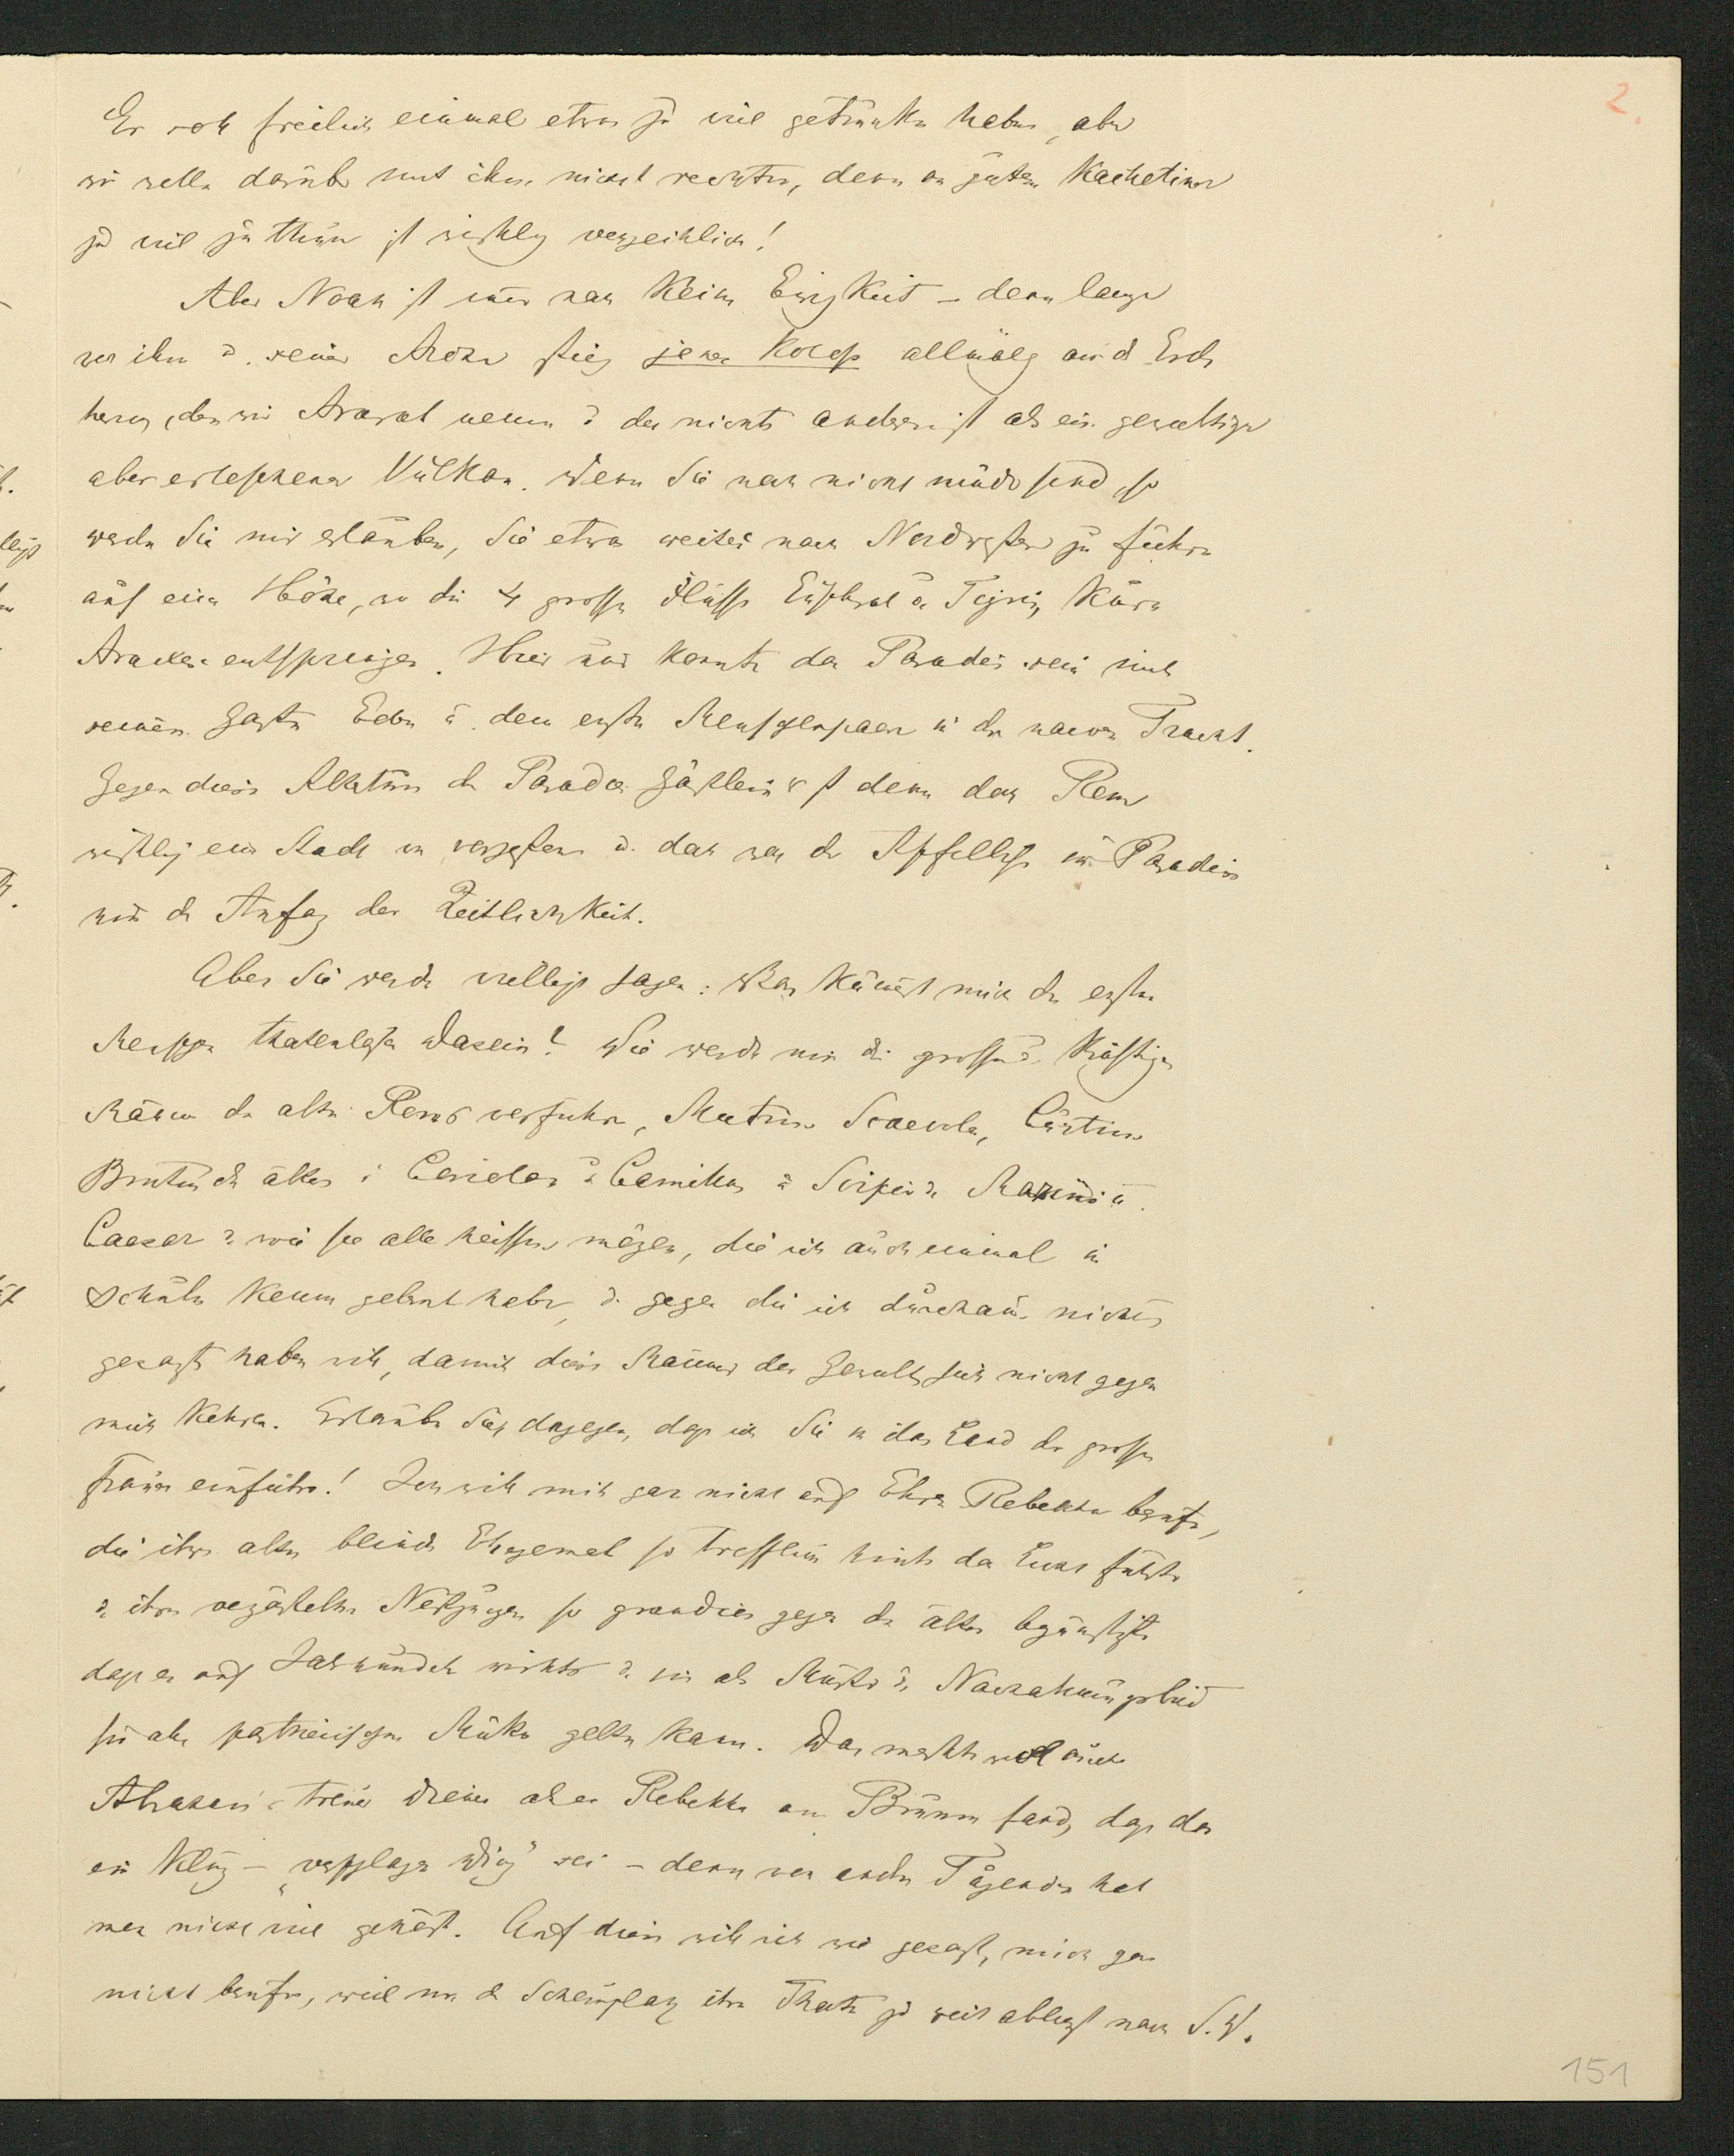 2.
Er soll freilich einmal etwas zu viel getrunken haben, aber
wir wollen darüber mit ihm nicht rechten, denn an gutem Kachetiner
zu viel zu thun ist wirklich verzeihlich!
Aber Noah ist immer noch keine Ewigkeit – denn lange
vor ihm u. seiner Arche stieg jener Koloss allmälig aus d Erde
heraus, den wir Ararat nennen u der nichts anderes ist als ein gewaltiger
aber erloschener Vulkan. Wenn Sie noch nicht müde sind, so
werden Sie mir erlauben, Sie etwas weiter nach Nordwesten zu führen
auf eine Höhe, wo die 4 grossen Flüsse Euphrat u Tigris, Kura
Araxes entspringen. Hier nur konnte das Paradies sein mit
seinem Garten Eden u. dem ersten Menschenpaar in der naiven Tracht.
Gegen dieses Alterthum des Paradies Gärtleins ist denn doch Rom
wirklich eine Stadt von vorgestern u. doch war der Apfelbiss im Paradies
nur der Anfang der Zeitlichkeit.
Aber Sie werden vielleicht sagen: Was kümmert mich der ersten
Menschen thatenloses Dasein? Sie werden mir die grossen u. kräftigen
Männer des alten Roms vorführen, Mutius Scaevola, Curtius
Brutus den ältern: Coriolan u Camillus u Scipio u. Marius u.
Caesar u wie sie alle heissen mögen, die ich auch einmal in
Schulen kennen gelernt habe, u. gegen die ich durchaus nichts
gesagt haben will, damit diese Männer der Gewalt sich nicht gegen
mich kehren. Erlauben Sie dagegen, dass ich Sie in das Land der grossen
Frauen einführe! Ich will mich gar nicht auf Ehren Rebekka berufen,
die ihren alten blinden Ehgemal so trefflich hinter das Licht führte
u ihren verzärtelten Nestjungen so grandios gegen den ältern begünstigte
dass es auf Jahrhunderte wirkte u. sie als Muster u. Nachahmungsbild
für alle parteiischen Mütter gelten kann. Das merkte wol auch
Abrahams treuer Diener als er Rebekka am Brunnen fand, dass das
ein klug – „verschlagen Ding" sei – denn von andern Tugenden hat
man nicht viel gehört. Auf diese will ich wie gesagt, mich gar
nicht berufen, weil mir der Schauplatz ihrer Thaten zu weit abliegt nach S.W.
151